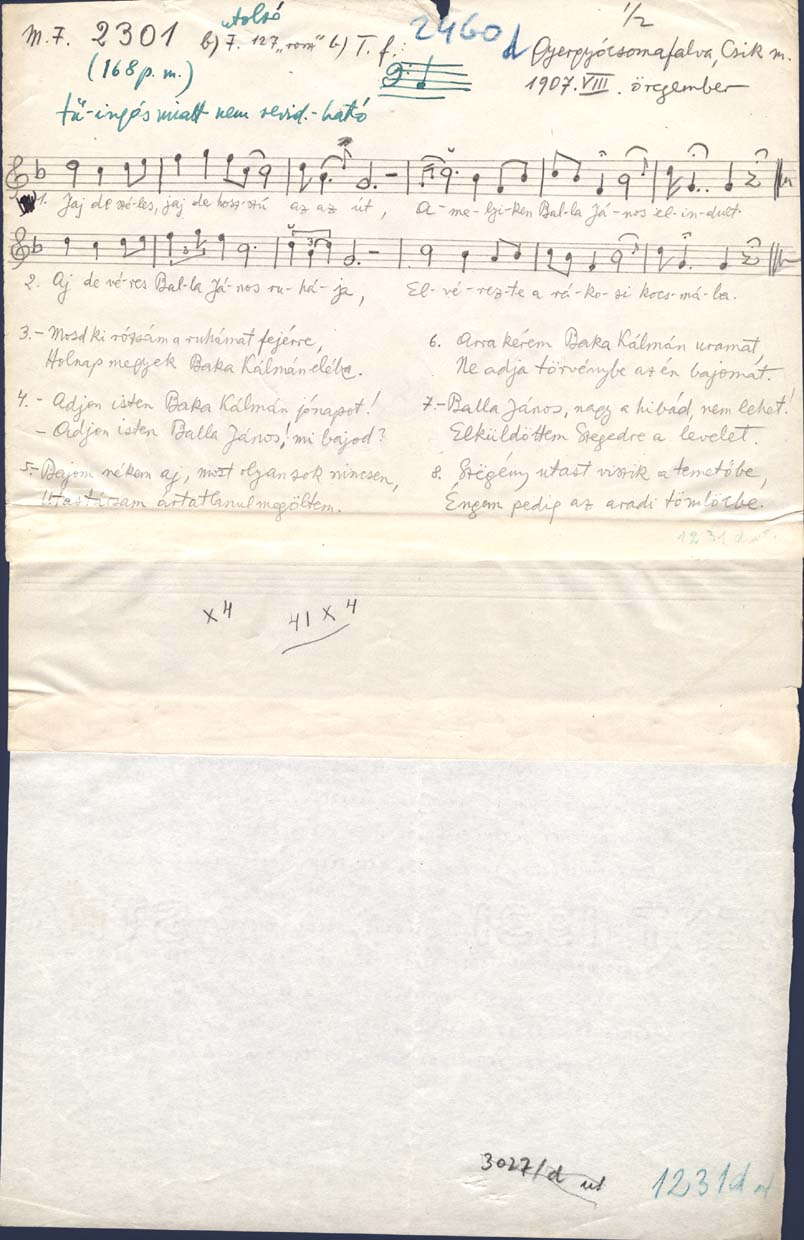 utolsó
M.F. 2301 b) F. 127 „rom" b) T. f.: 2460 d 1/2
Gyergyócsomafalva, Csik m.
(168 p. m.) 1907. VIII. öregember
tű-ingés miatt nem revid.-ható
1. Jaj de szé-les, jaj de hosz-szú az az út, A-me-lyi-ken Bal-la Já-nos el-in-dult.
2. Aj de vé-res Bal-la Já-nos ru-há-ja, El-vé-rez-te a rá-ko-si kocs-má-ba.
3. - Mosd ki rózsám a ruhámat fejérre,
Holnap megyek Baka Kálmán elébe.
4. - Adjon isten Baka Kálmán jónapot!
- Adjon isten Balla János! mi bajod?
5. - Bajom nékem aj, most olyan sok nincsen,
Utastársam ártatlanul megöltem.
6. Arra kérem Baka Kálmán uramat,
Ne adja törvénybe az én bajomat.
7. - Balla János, nagy a hibád, nem lehet!
Elküldöttem Szegedre a levelet.
8. Szögény utast viszik a temetőbe,
Éngem pedig az aradi tömlöcbe.
1231 d
x 4 41 x 4
3027/d
1231/d